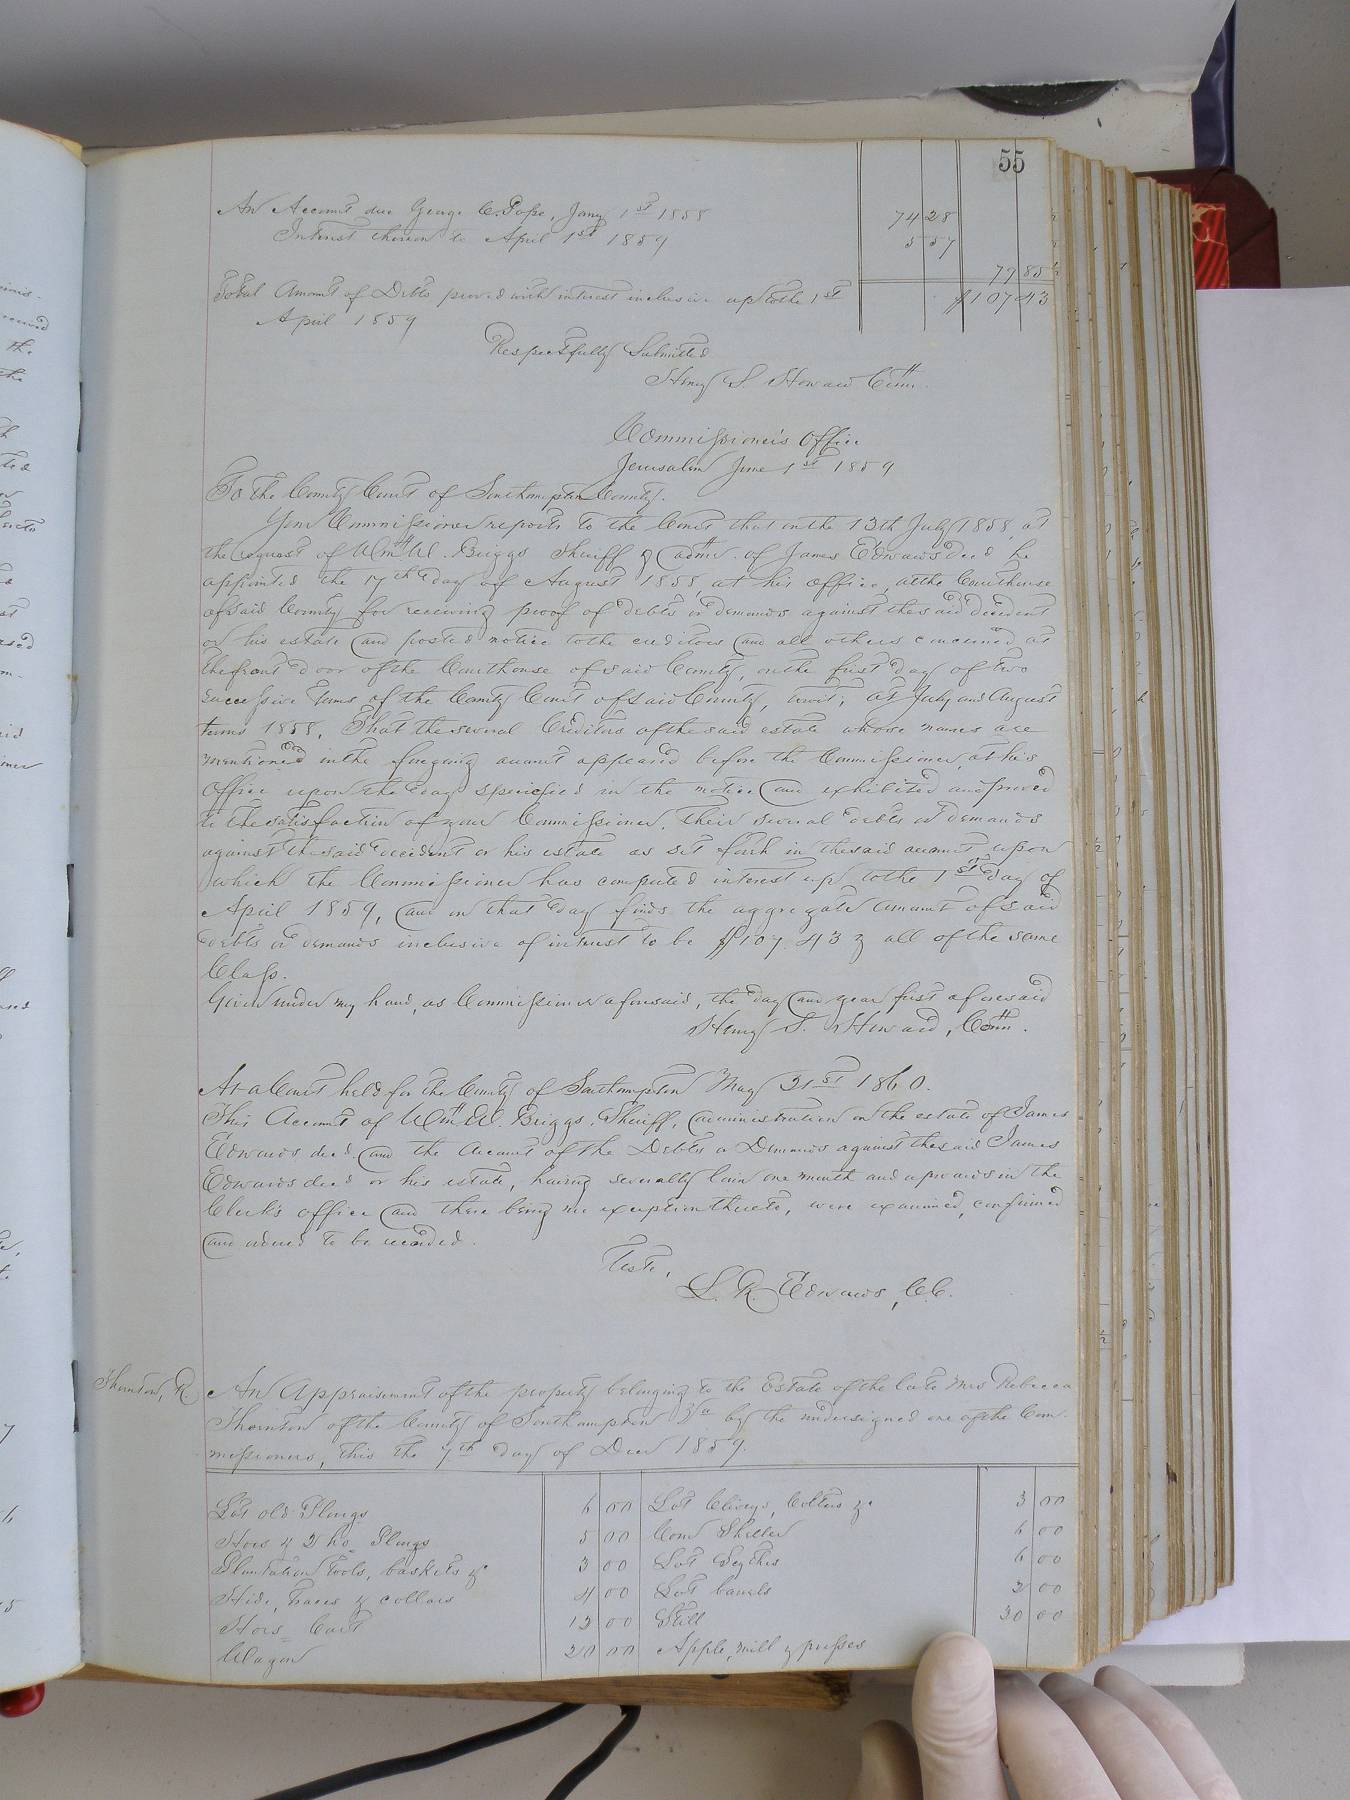 55
An Account due George C. Pope, Jany 1st 1858 74 28
Interest thereon to April 1st 1859 5 57
79 85
Total Amount of Debts proved with interest inclusive up to the 1st $107 43
April 1859
Respectfully Submitted
Henry S. Howard Comr.
Commissioner's Office
Jerusalem June 1st 1859
To the County Court of Southampton County.
Your Commissioner reports to the Court that on the 13th July 1858, at
the request of Wm W. Briggs Sheriff & admr. of James Edwards decd he
appointed the 17th day of August 1858, at his office, at the Courthouse
of said County for receiving proof of debts or demands against the said decedent
or his estate and posted notice to the creditors and all others concerned at
the front door of the Courthouse of said County, on the first day of two
successive terms of the County Court of said County, towit; at July and August
terms 1858. That the several Creditors of the said estate whose names are
mentioned in the foregoing account appeared before the Commissioner, at his
office upon the day specified in the notice and exhibited and proved
to the satisfaction of your Commissioner, their several debts or demands
against the said decedent or his estate as set forth in the said account upon
which the Commissioner has computed interest up to the 1st day of
April 1859, and on that day finds the aggregate amount of said
debts or demands inclusive of interest to be $107.43 & all of the same
Class.
Given under my hand, as Commissioner aforesaid, the day and year first aforesaid
Henry S. Howard, Comr.
At a Court held for the County of Southampton May 31st 1860.
This Account of Wm W. Briggs, Sheriff, administration on the estate of James
Edwards decd. and the Account of the Debts or Demands against the said James
Edwards decd or his estate, having severally lain one month and upwards in the
Clerk's office and there being no exception thereto, were examined, confirmed
and ordered to be recorded.
Teste,
L. R. Edwards, C.C.
Thornton, R
An Appraisement of the property belonging to the Estate of the late Mrs Rebecca
Thornton of the County of Southampton Va by the undersigned one of the Com-
missioners, this the 7th day of Decr 1859.
Lot old Plougs 6 00 Lot Cliveys, Colters &c 3 00
Hoes & 2 ho. Plougs 5 00 Corn Sheller 6 00
Plantation tools, baskets &c 3 00 Lot Scythes 6 00
Hide, traces & collars 4 00 Lot barrels 2 00
Hors= Cart 12 00 Still 30 00
Wagon 20 00 Apple, mill & presses